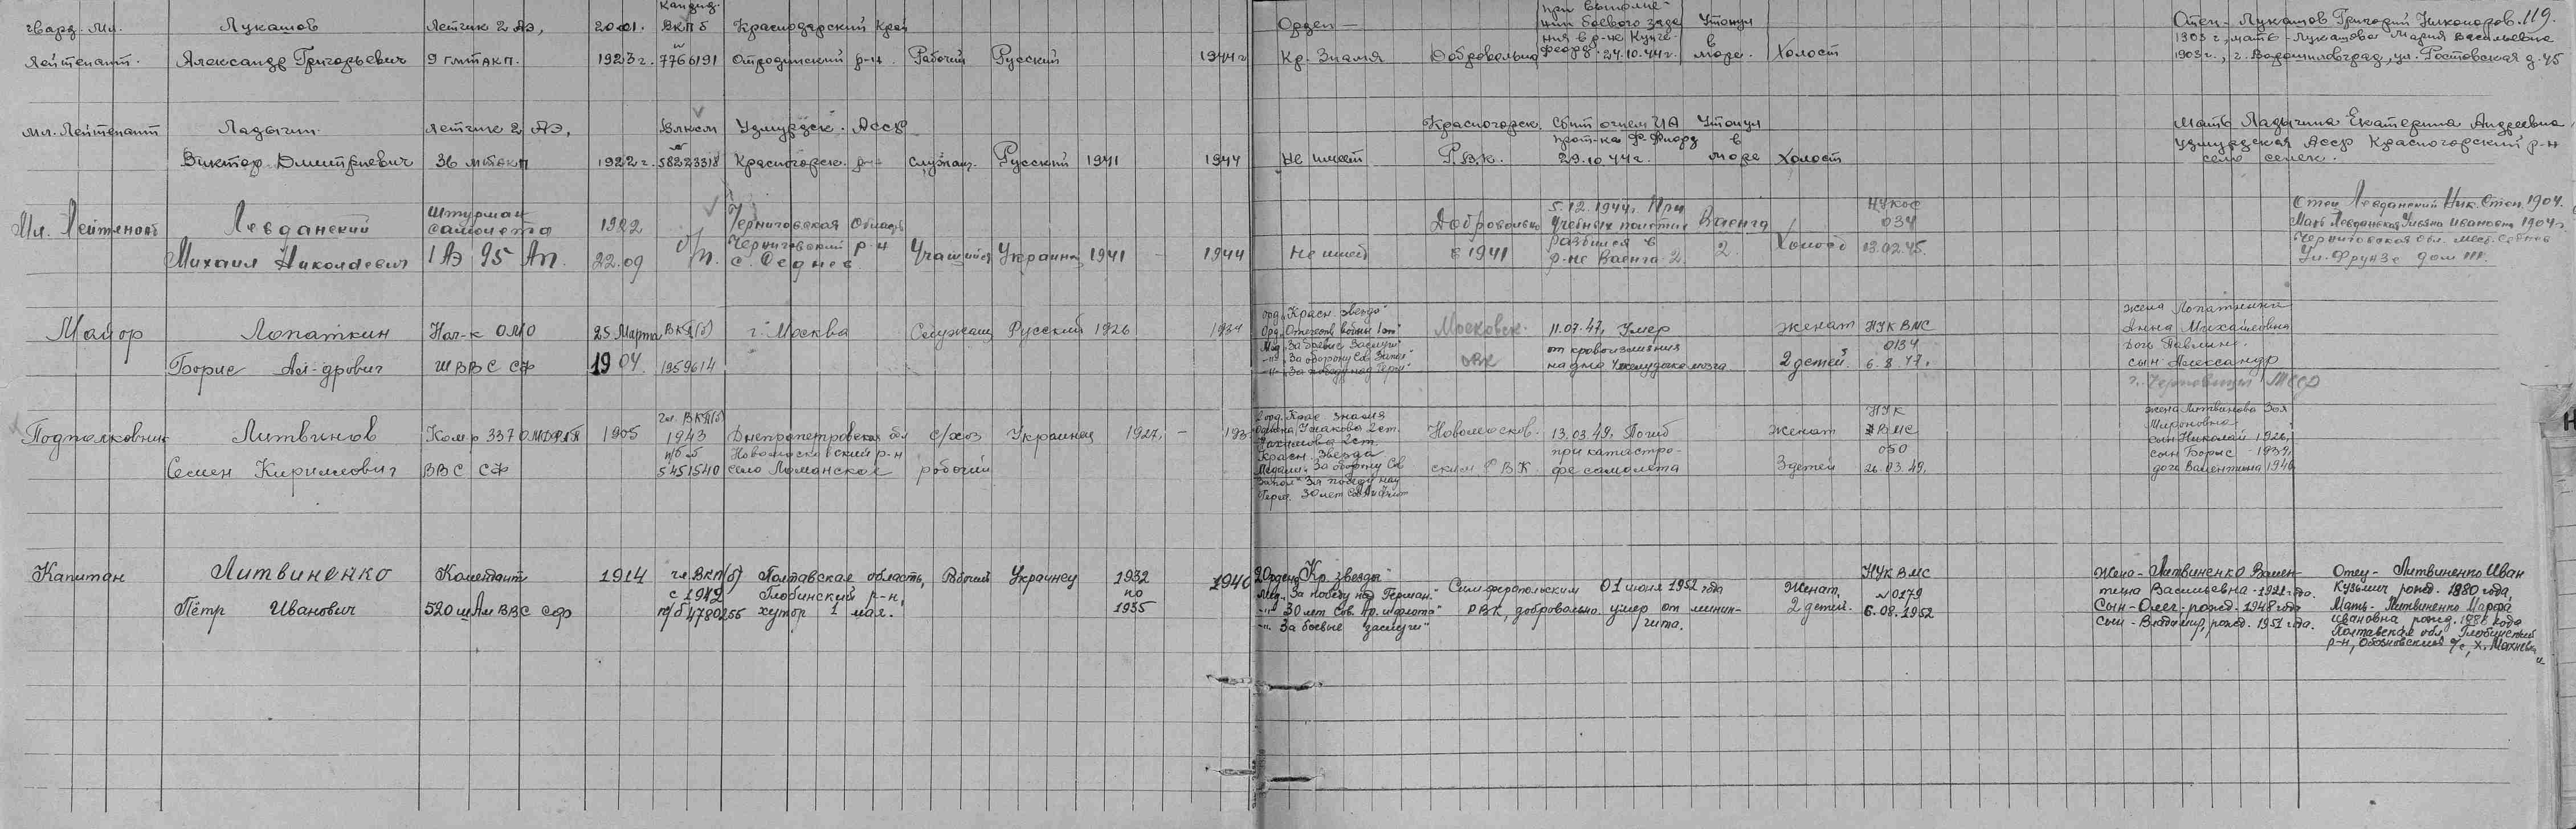 119.
гвард. Мл. Лукашов Летчик 2 АЭ, 20.01. Кандид. ВКП б Краснодарский Край Орден — при выполне- нии боевого зада ния в р-не Конгс- Утонул Отец - Лукашов Григорий Никоноров.
Лейтенант. Александр Григорьевич 9 гмтАКП. 1923 г. 7766191 Отрадинский р-н. Рабочий Русский 1944 г Кр. Знамя Добровольно фиорд. 27.10.44 г. в море. Холост 1903 г., мать - Лукашова Мария Васильевна
1903 г., г. Ворошиловград, ул. Ростовская д. 45
Мл. Лейтенант Ладыгин Летчик 2 АЭ, ВЛКСМ Удмурдск. АССР Красногорск. Сбит огнем ЗА Утонул Мать Ладыгина Екатерина Андреевна
Виктор Дмитриевич 36 мтАКП 1922 г. 58223318 Красногорск. р-н Служащ. Русский 1941 1944 Не имеет Р.В.К. 29.10.44 г. в море Холост Удмурдская АССР Красногорский р-н
село
Мл. Лейтенант Левданский Штурман самолета 1922 Черниговская Область Добровольно 5.12.1944 г. При учебных полетах Ваенга НУКОС 034 Отец Левданский Ник. Степ. 1904.
Михаил Николаевич 1 АЭ 95 Ап. 22.09 б/п. Черниговский р-н с. Седнев Учащийся Украинец 1941 - 1944 Не имеет в 1941 разбился в р-не Ваенга 2. 2. Холост 13.02.45. Мать Левданская Ивановна 1904 г.
Черниговская обл. мест. Седнев
Ул. Фрунзе дом
Майор Лопаткин Нач-к ОМО 25 Марта ВКП(б) г. Москва Служащ Русский 1926 1934 Орд. "Красн. звезда" Московск. 11.07.47, Умер женат НУК ВМС жена Лопаткина
Орд. "Отечеств. войны 1 ст" Анна Михайловна
Борис Ал-дрович Ш ВВС СФ 1904. 1959614 Мед. "За боевые Заслуги" ОВК от кровоизлияния 0134 дочь Павлина.
-"- "За оборону Сов. Запол" на дно желудочка мозга 2 детей 6.8.47. сын Александр
-"- "За победу над Герм" г. Черновицы
Подполковник Литвинов Ком-р 337 1905 чл. ВКП(б) 1943 Днепропетровская обл с/хоз Украинец 1927, - 2 орд. Крас. знамя Новомосков- 13.03.49, Погиб женат НУК ВМС жена Литвинова Зоя
Ордена Ушакова 2 ст. Мироновна
Семен Кириллович ВВС СФ п/б № 5451540 Новомосковский р-н село Ломанское рабочий Нахимова 2 ст. ским РВК при катастро- фе самолета 3 детей 050 26.03.49. сын Николай 1926,
Красн. Звезда сын Борис - 1937,
Медали "За оборону Сов дочь Валентина 1946
Запол" За победу над
Герм. 30 лет СА и Флот
Капитан Литвиненко Комендант 1914 чл. ВКП(б) Полтавская область, Рабочий Украинец 1932 1940 2 Ордена "Кр. звезды" Симферопольским 01 июня 1952 года Женат, НУК ВМС Жена - Литвиненко Вален- Отец - Литвиненко Иван
с 1942 Глобинский р-н, по Мед. "За победу над Герман." №0179 тина Васильевна - 1921 года. Кузьмич рожд. 1880 года,
Пётр Иванович 520 ш Ап ВВС Сф п/б 4780255 хутор 1 мая. 1935 -"- 30 лет Сов. Ар. и флота" РВК, добровольно. умер от менин- 2 детей. 6.08.1952 Сын - Олег, рожд. 1948 года Мать - Литвиненко Марфа
-"- За боевые заслуги" гита. Сын - Владимир, рожд. 1951 года. Ивановна рожд. 1886 года
Полтавская обл. Глобинский
р-н, с/с, х.